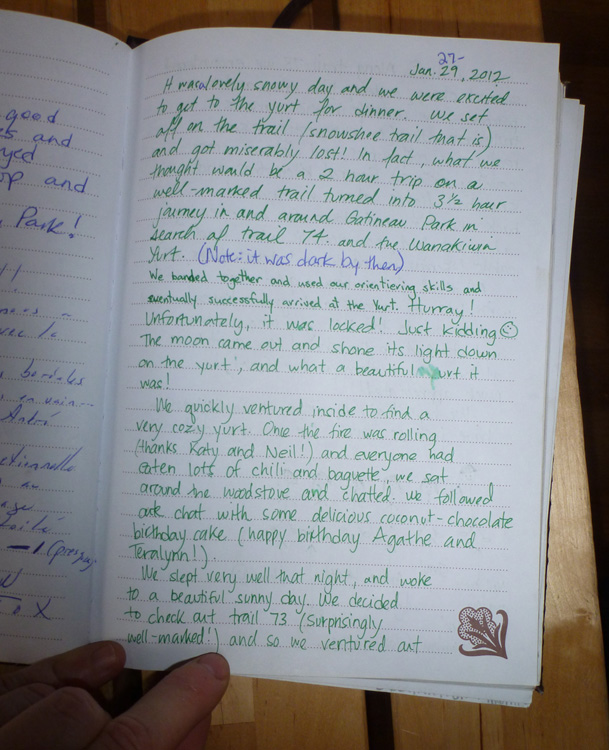 good
and
and
Park!
27-
Jan. 29, 2012
It was a lovely snowy day and we were excited
to get to the yurt for dinner. We set
off on the trail (snowshoe trail that is)
and got miserably lost! In fact, what we
thought would be a 2 hour trip on a
well-marked trail turned into 3½ hour
journey in and around Gatineau Park in
search of trail 74 and the Wanakiwin
Yurt. (Note: it was dark by then)
We banded together and used our orientiering skills and
eventually successfully arrived at the Yurt. Hurray!
Unfortunately, it was locked! Just kidding ☺
The moon came out and shone its light down
on the yurt, and what a beautiful yurt it
was!
We quickly ventured inside to find a
very cozy yurt. Once the fire was rolling
(thanks Katy and Neil!) and everyone had
eaten lots of chili and baguette, we sat
around the woodstove and chatted. We followed
our chat with some delicious coconut-chocolate
birthday cake (happy birthday Agathe and
Teralynn!).
We slept very well that night, and woke
to a beautiful sunny day. We decided
to check out trail 73 (surprisingly
well-marked!) and so we ventured out